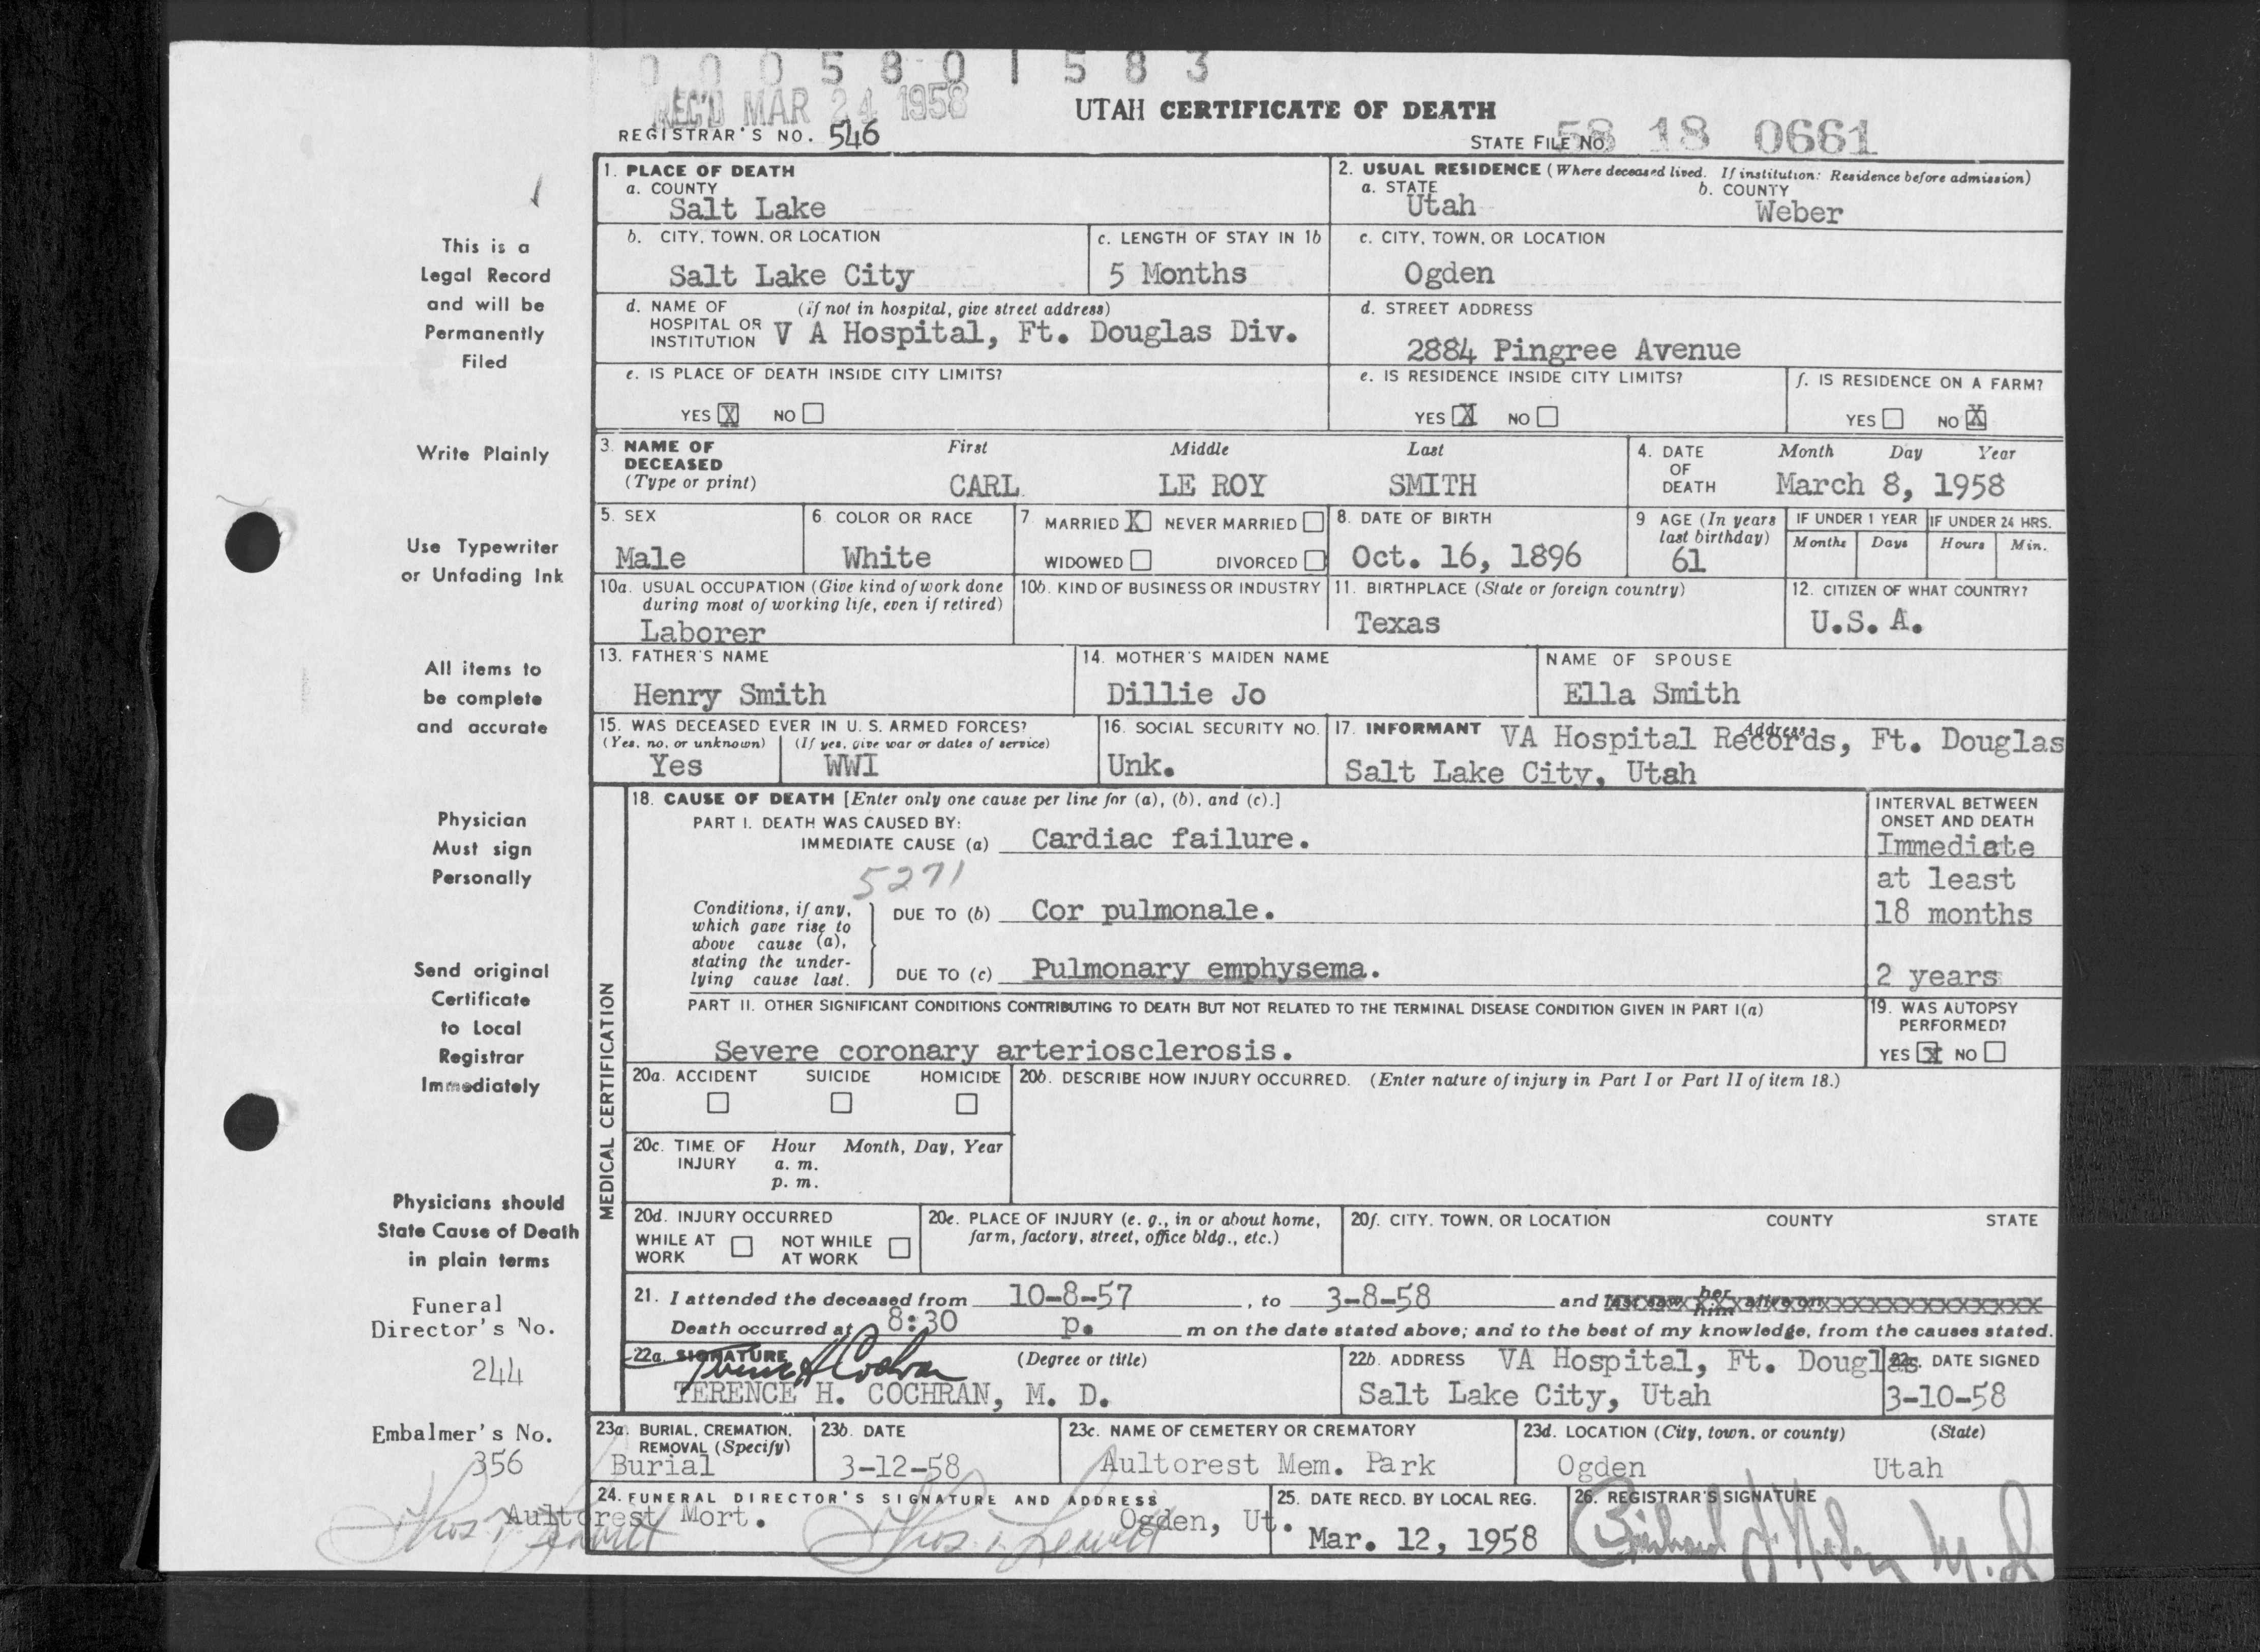 0005801583
REC'D MAR 24 1958
UTAH CERTIFICATE OF DEATH
REGISTRAR'S NO. 546
STATE FILE NO. 58 18 0661
This is a
Legal Record
and will be
Permanently
Filed
Write Plainly
Use Typewriter
or Unfading Ink
All items to
be complete
and accurate
Physician
Must sign
Personally
Send original
Certificate
to Local
Registrar
Immediately
Physicians should
State Cause of Death
in plain terms
Funeral
Director's No.
244
Embalmer's No.
356
1. PLACE OF DEATH
a. COUNTY
Salt Lake
2. USUAL RESIDENCE (Where deceased lived. If institution: Residence before admission)
a. STATE
Utah
b. COUNTY
Weber
b. CITY, TOWN, OR LOCATION
Salt Lake City
c. LENGTH OF STAY IN 1b
5 Months
c. CITY, TOWN, OR LOCATION
Ogden
d. NAME OF HOSPITAL OR INSTITUTION (if not in hospital, give street address)
V A Hospital, Ft. Douglas Div.
d. STREET ADDRESS
2884 Pingree Avenue
e. IS PLACE OF DEATH INSIDE CITY LIMITS?
YES X NO
e. IS RESIDENCE INSIDE CITY LIMITS?
YES X NO
f. IS RESIDENCE ON A FARM?
YES NO X
3. NAME OF DECEASED (Type or print)
First Middle Last
CARL LE ROY SMITH
4. DATE OF DEATH
Month Day Year
March 8, 1958
5. SEX
Male
6. COLOR OR RACE
White
7. MARRIED X NEVER MARRIED
WIDOWED DIVORCED
8. DATE OF BIRTH
Oct. 16, 1896
9 AGE (In years last birthday)
61
IF UNDER 1 YEAR
Months Days
IF UNDER 24 HRS.
Hours Min.
10a. USUAL OCCUPATION (Give kind of work done during most of working life, even if retired)
Laborer
10b. KIND OF BUSINESS OR INDUSTRY
11. BIRTHPLACE (State or foreign country)
Texas
12. CITIZEN OF WHAT COUNTRY?
U.S.A.
13. FATHER'S NAME
Henry Smith
14. MOTHER'S MAIDEN NAME
Dillie Jo
NAME OF SPOUSE
Ella Smith
15. WAS DECEASED EVER IN U. S. ARMED FORCES?
(Yes, no, or unknown) (If yes, give war or dates of service)
Yes WWI
16. SOCIAL SECURITY NO.
Unk.
17. INFORMANT Address
VA Hospital Records, Ft. Douglas
Salt Lake City, Utah
MEDICAL CERTIFICATION
18. CAUSE OF DEATH [Enter only one cause per line for (a), (b), and (c).]
PART I. DEATH WAS CAUSED BY:
IMMEDIATE CAUSE (a) Cardiac failure.
5271
Conditions, if any, which gave rise to above cause (a), stating the underlying cause last.
DUE TO (b) Cor pulmonale.
DUE TO (c) Pulmonary emphysema.
INTERVAL BETWEEN ONSET AND DEATH
Immediate
at least
18 months
2 years
PART II. OTHER SIGNIFICANT CONDITIONS CONTRIBUTING TO DEATH BUT NOT RELATED TO THE TERMINAL DISEASE CONDITION GIVEN IN PART I(a)
Severe coronary arteriosclerosis.
19. WAS AUTOPSY PERFORMED?
YES X NO
20a. ACCIDENT SUICIDE HOMICIDE
20b. DESCRIBE HOW INJURY OCCURRED. (Enter nature of injury in Part I or Part II of item 18.)
20c. TIME OF INJURY Hour Month, Day, Year
a. m.
p. m.
20d. INJURY OCCURRED
WHILE AT WORK NOT WHILE AT WORK
20e. PLACE OF INJURY (e. g., in or about home, farm, factory, street, office bldg., etc.)
20f. CITY, TOWN, OR LOCATION COUNTY STATE
21. I attended the deceased from 10-8-57, to 3-8-58 and last saw her him alive on
Death occurred at 8:30 p. m on the date stated above; and to the best of my knowledge, from the causes stated.
22a. SIGNATURE (Degree or title)
Terence H Cochran
TERENCE H. COCHRAN, M. D.
22b. ADDRESS VA Hospital, Ft. Douglas
Salt Lake City, Utah
22c. DATE SIGNED
3-10-58
23a. BURIAL, CREMATION, REMOVAL (Specify)
Burial
23b. DATE
3-12-58
23c. NAME OF CEMETERY OR CREMATORY
Aultorest Mem. Park
23d. LOCATION (City, town, or county) (State)
Ogden Utah
24. FUNERAL DIRECTOR'S SIGNATURE AND ADDRESS
Aultorest Mort. Ogden, Ut.
25. DATE RECD. BY LOCAL REG.
Mar. 12, 1958
26. REGISTRAR'S SIGNATURE
M.D.